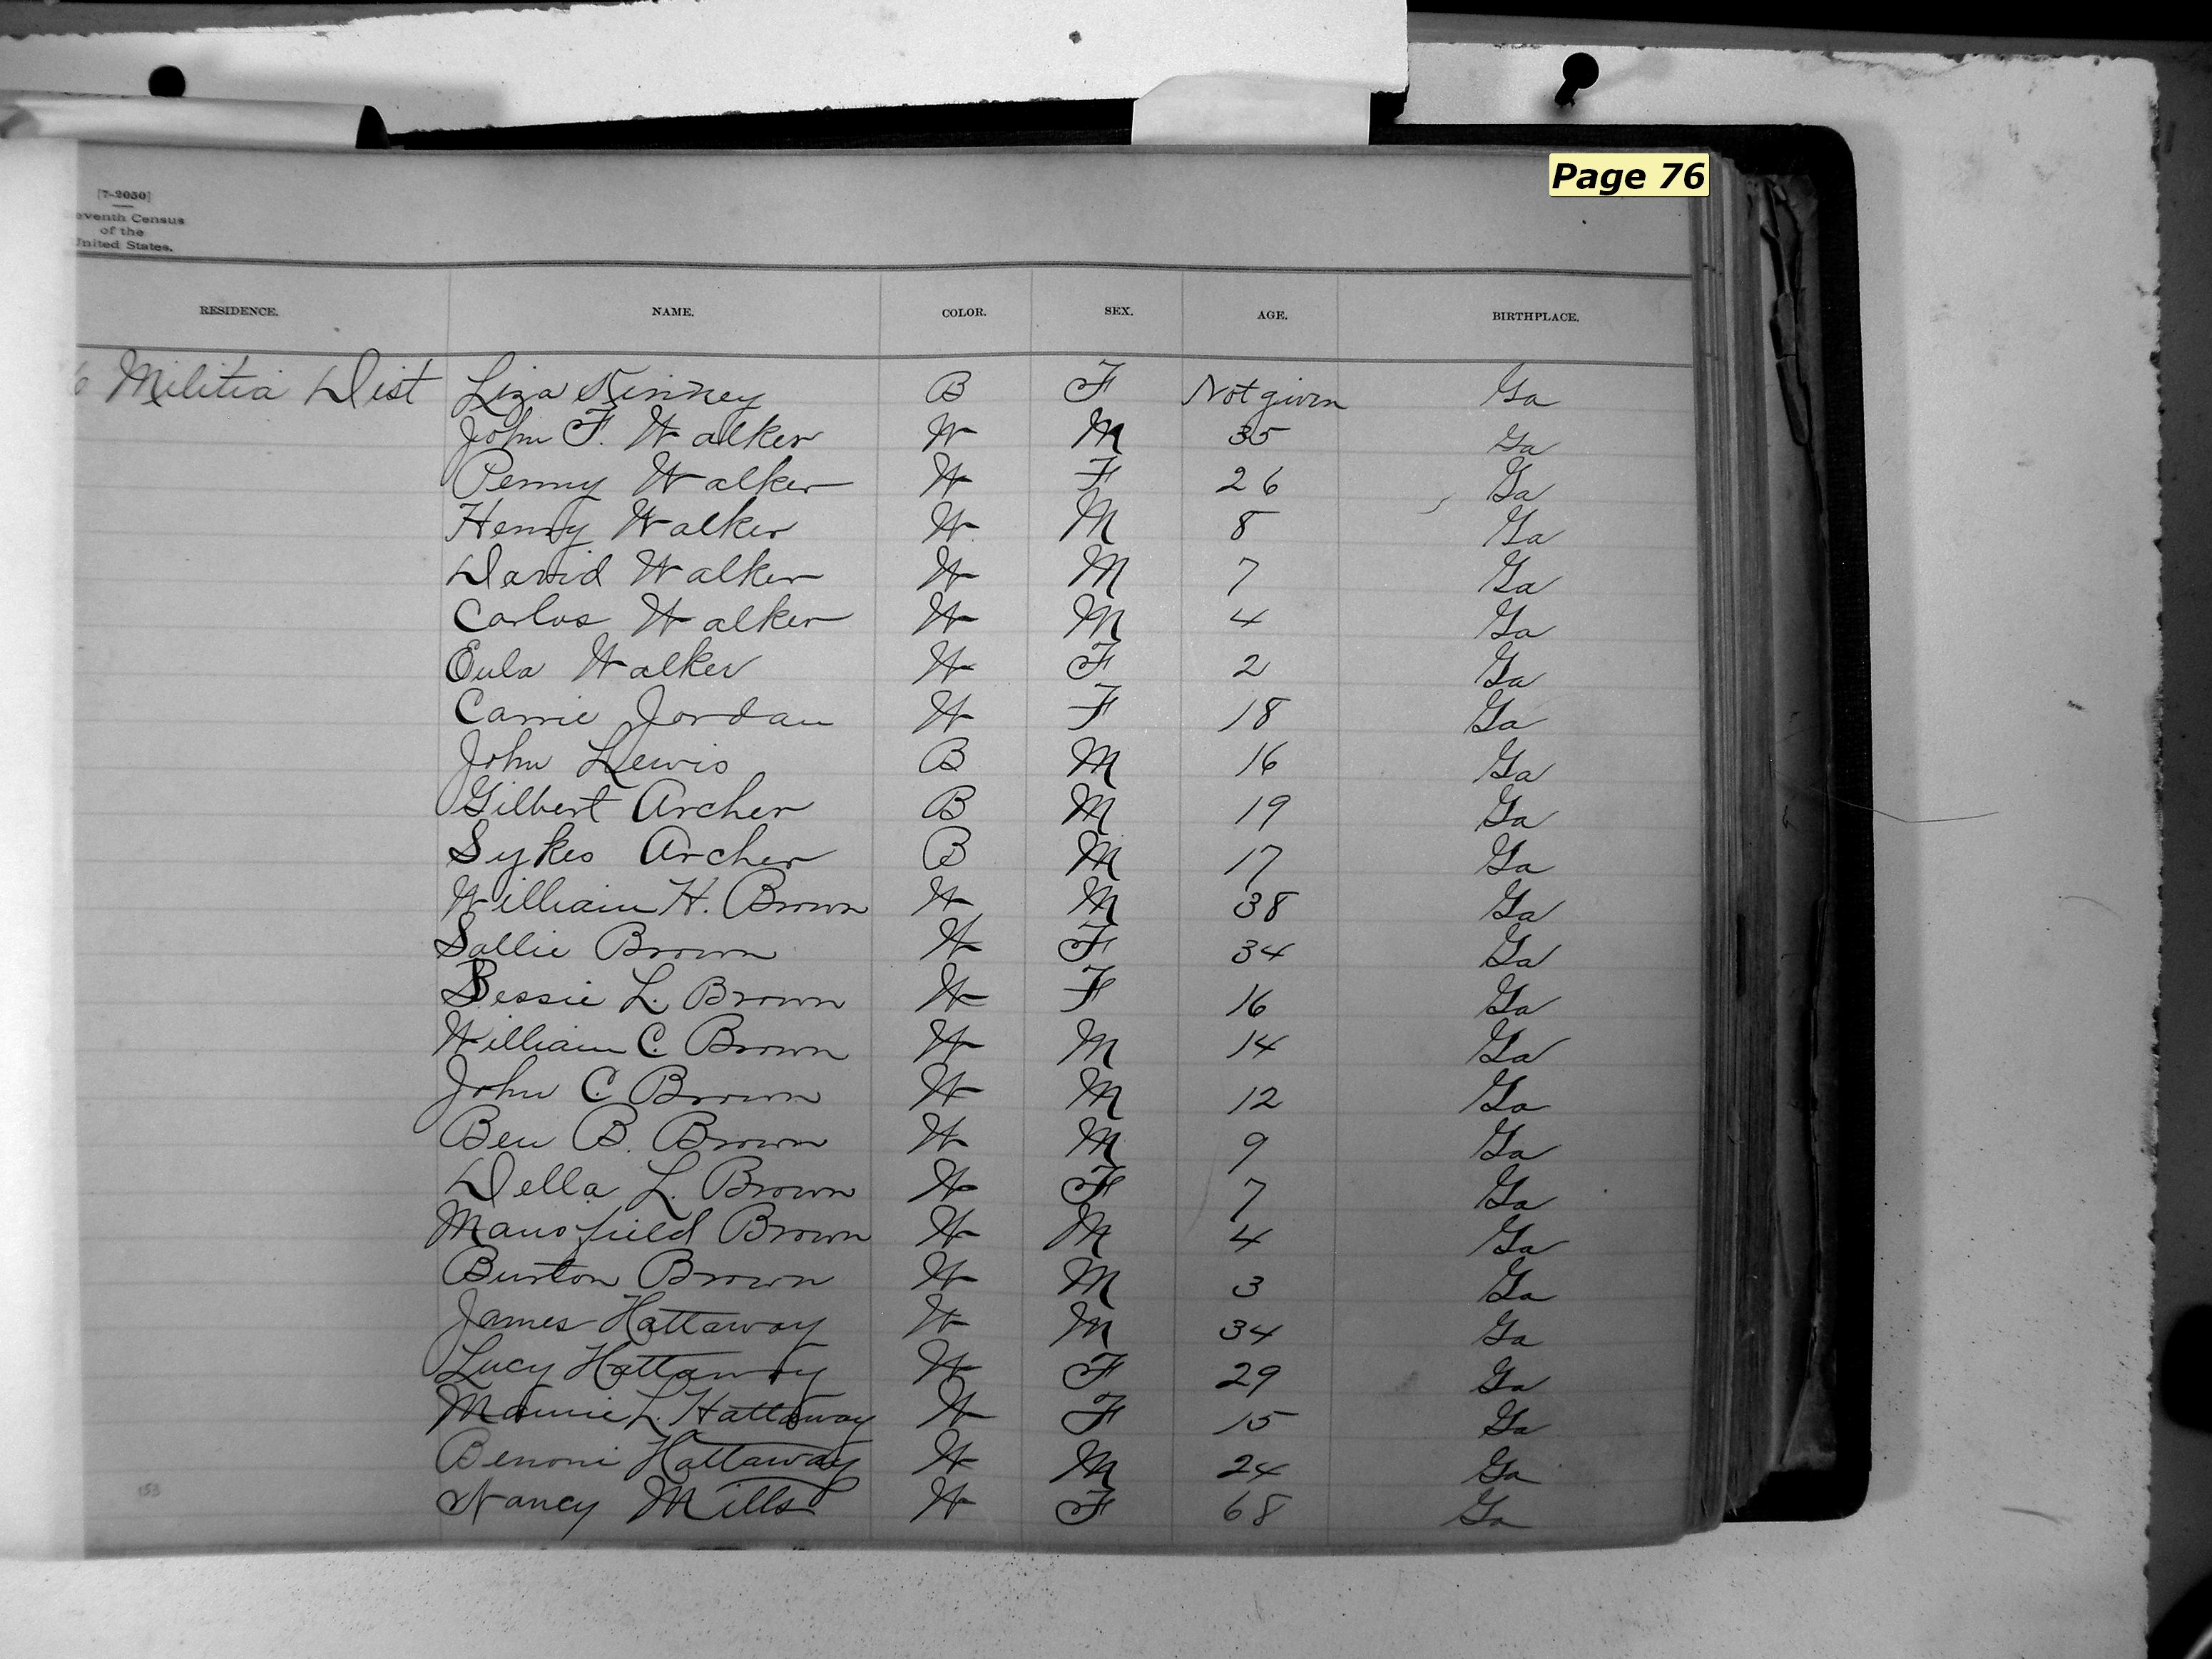 Page 76
[7-2050]
eventh Census
of the
United States.
RESIDENCE. NAME. COLOR. SEX. AGE. BIRTHPLACE.
6 Militia Dist Liza Kinney B F Not given Ga
John F. Walker W M 35 Ga
Penny Walker W F 26 Ga
Henry Walker W M 8 Ga
David Walker W M 7 Ga
Carlos Walker W M 4 Ga
Eula Walker W F 2 Ga
Carrie Jordan W F 18 Ga
John Lewis B M 16 Ga
Gilbert Archer B M 19 Ga
Sykes Archer B M 17 Ga
William H. Brown W M 38 Ga
Sallie Brown W F 34 Ga
Bessie L. Brown W F 16 Ga
William C. Brown W M 14 Ga
John C. Brown W M 12 Ga
Ben B. Brown W M 9 Ga
Della L. Brown W F 7 Ga
Mansfield Brown W M 4 Ga
Burton Brown W M 3 Ga
James Hattaway W M 34 Ga
Lucy Hattaway W F 29 Ga
Mamie L. Hattaway W F 15 Ga
Benoni Hattaway W M 24 Ga
153 Nancy Mills W F 68 Ga